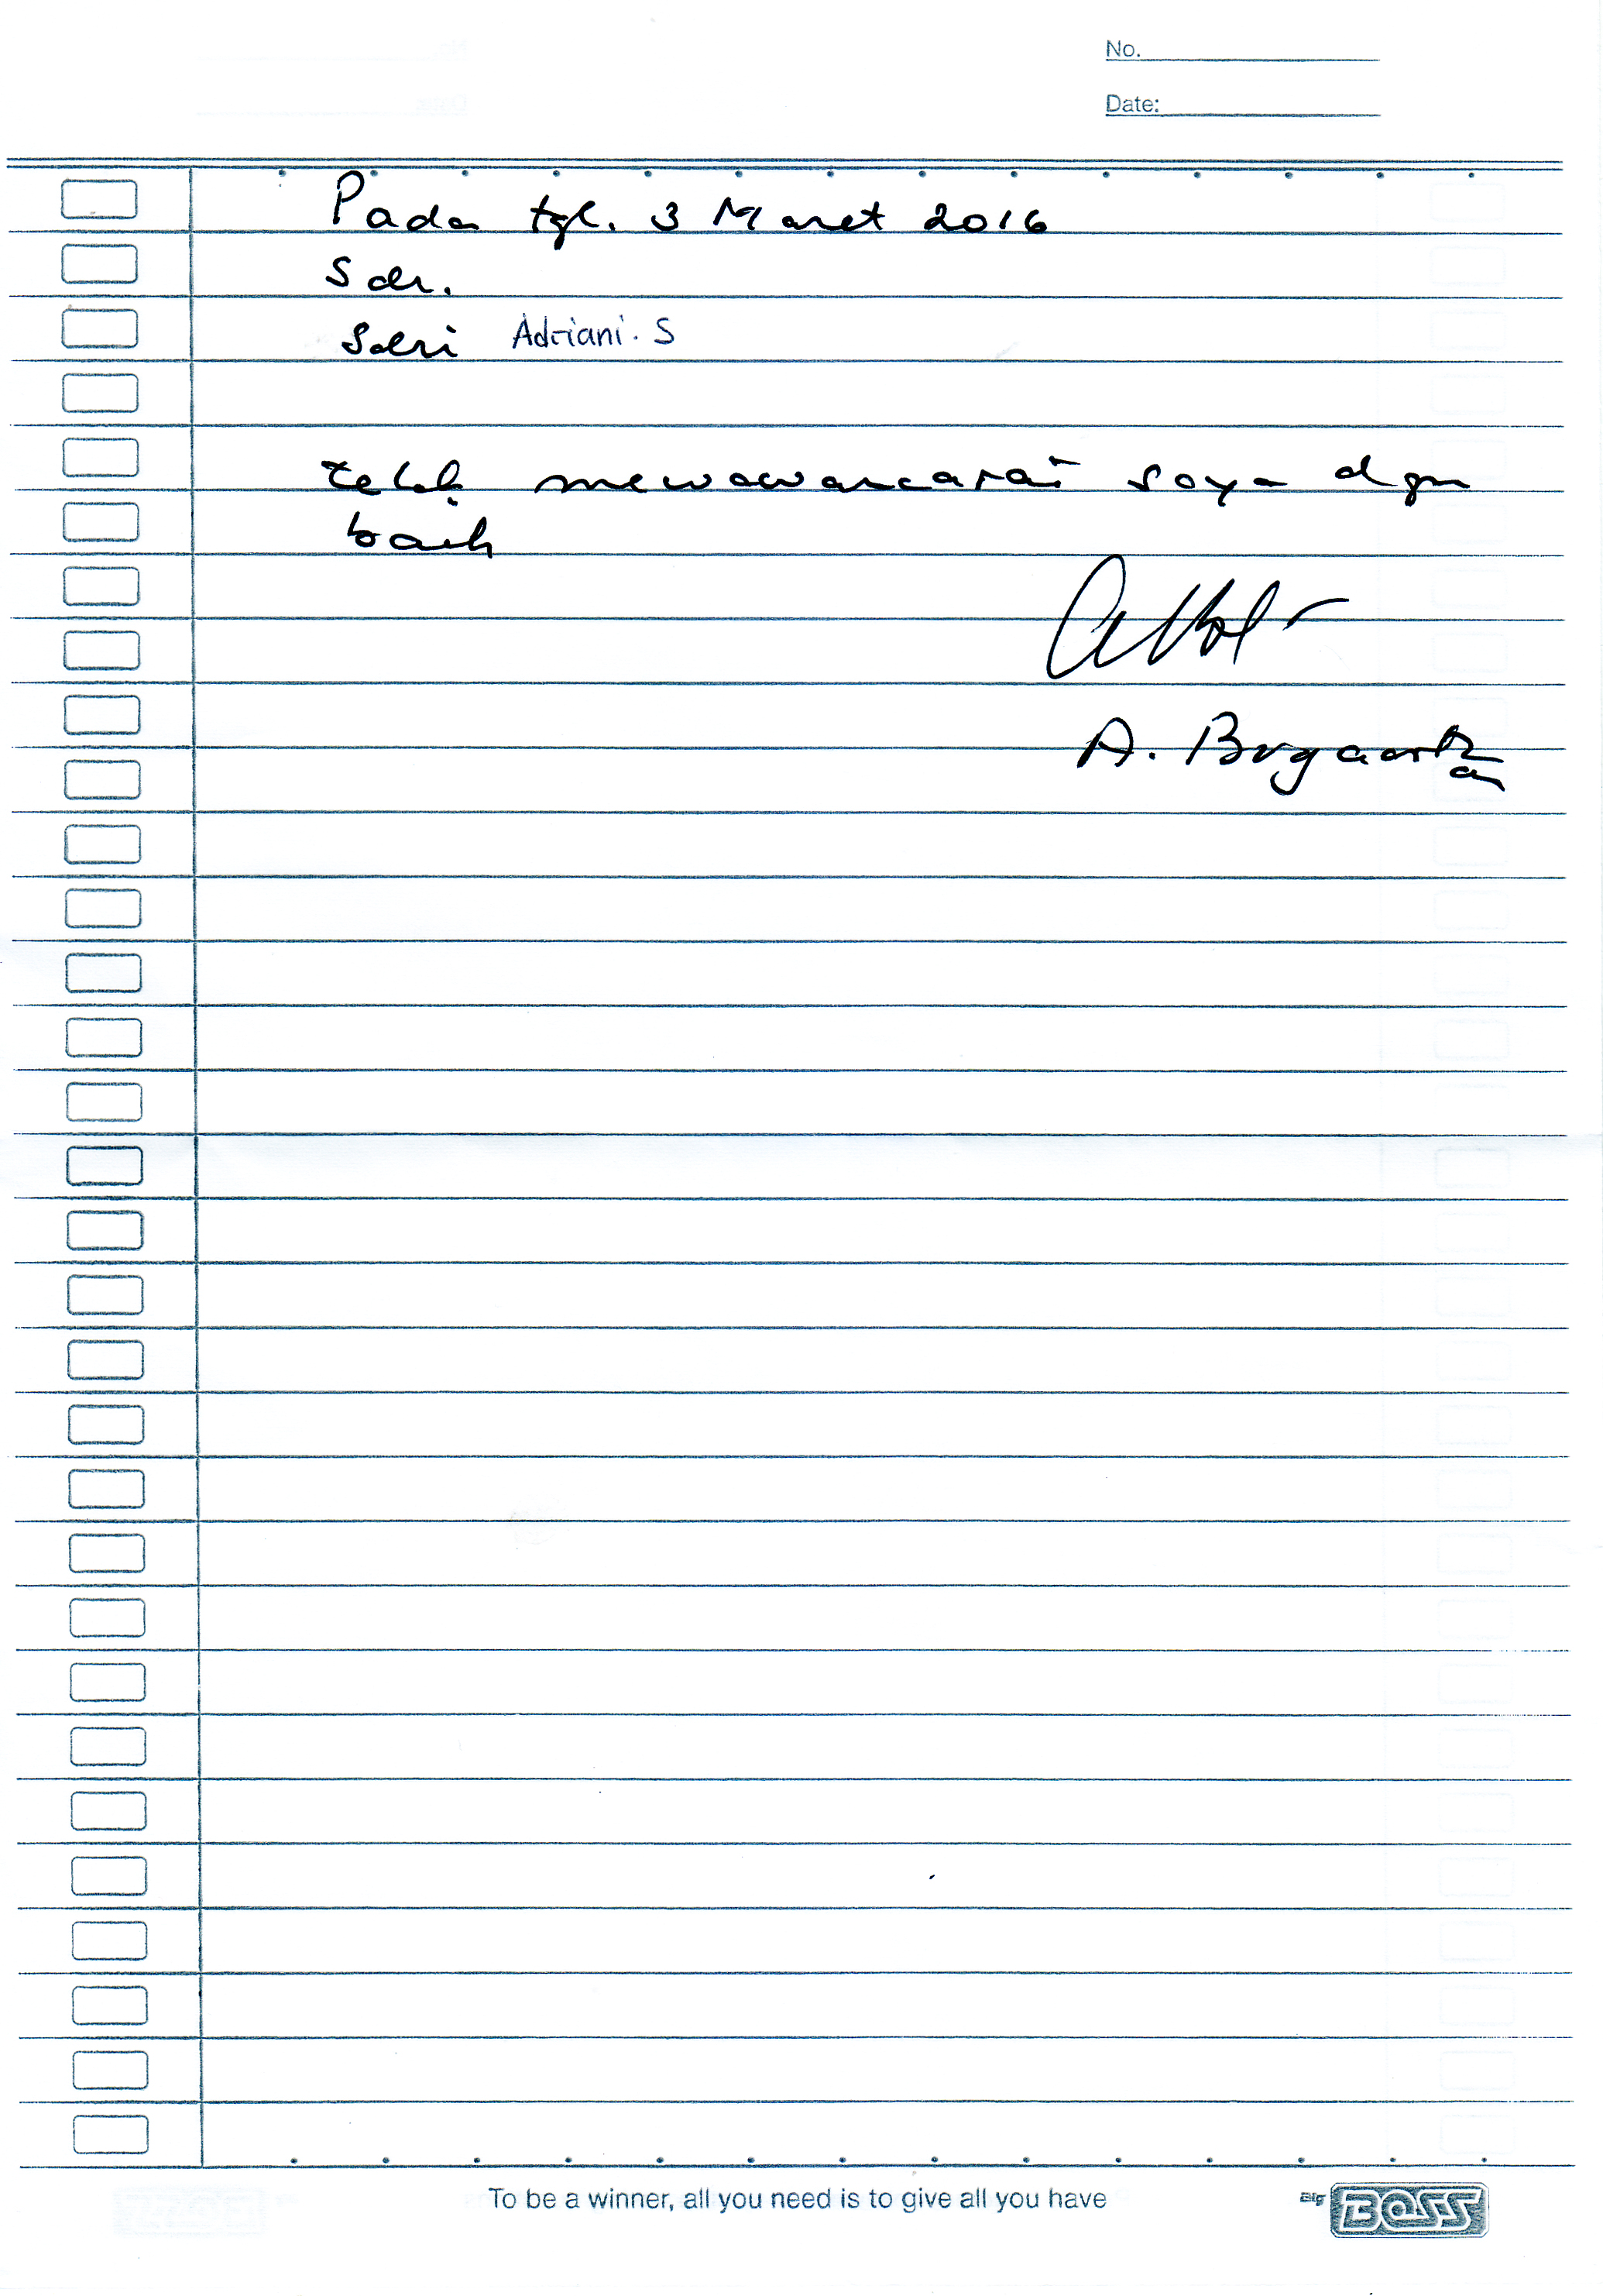 No.
Date:
Pada tgl. 3 Maret 2016
Sdr.
Sdri Adriani. S
telah mewawancarai saya dgn
baik
A.
To be a winner, all you need is to give all you have
Big BOSS